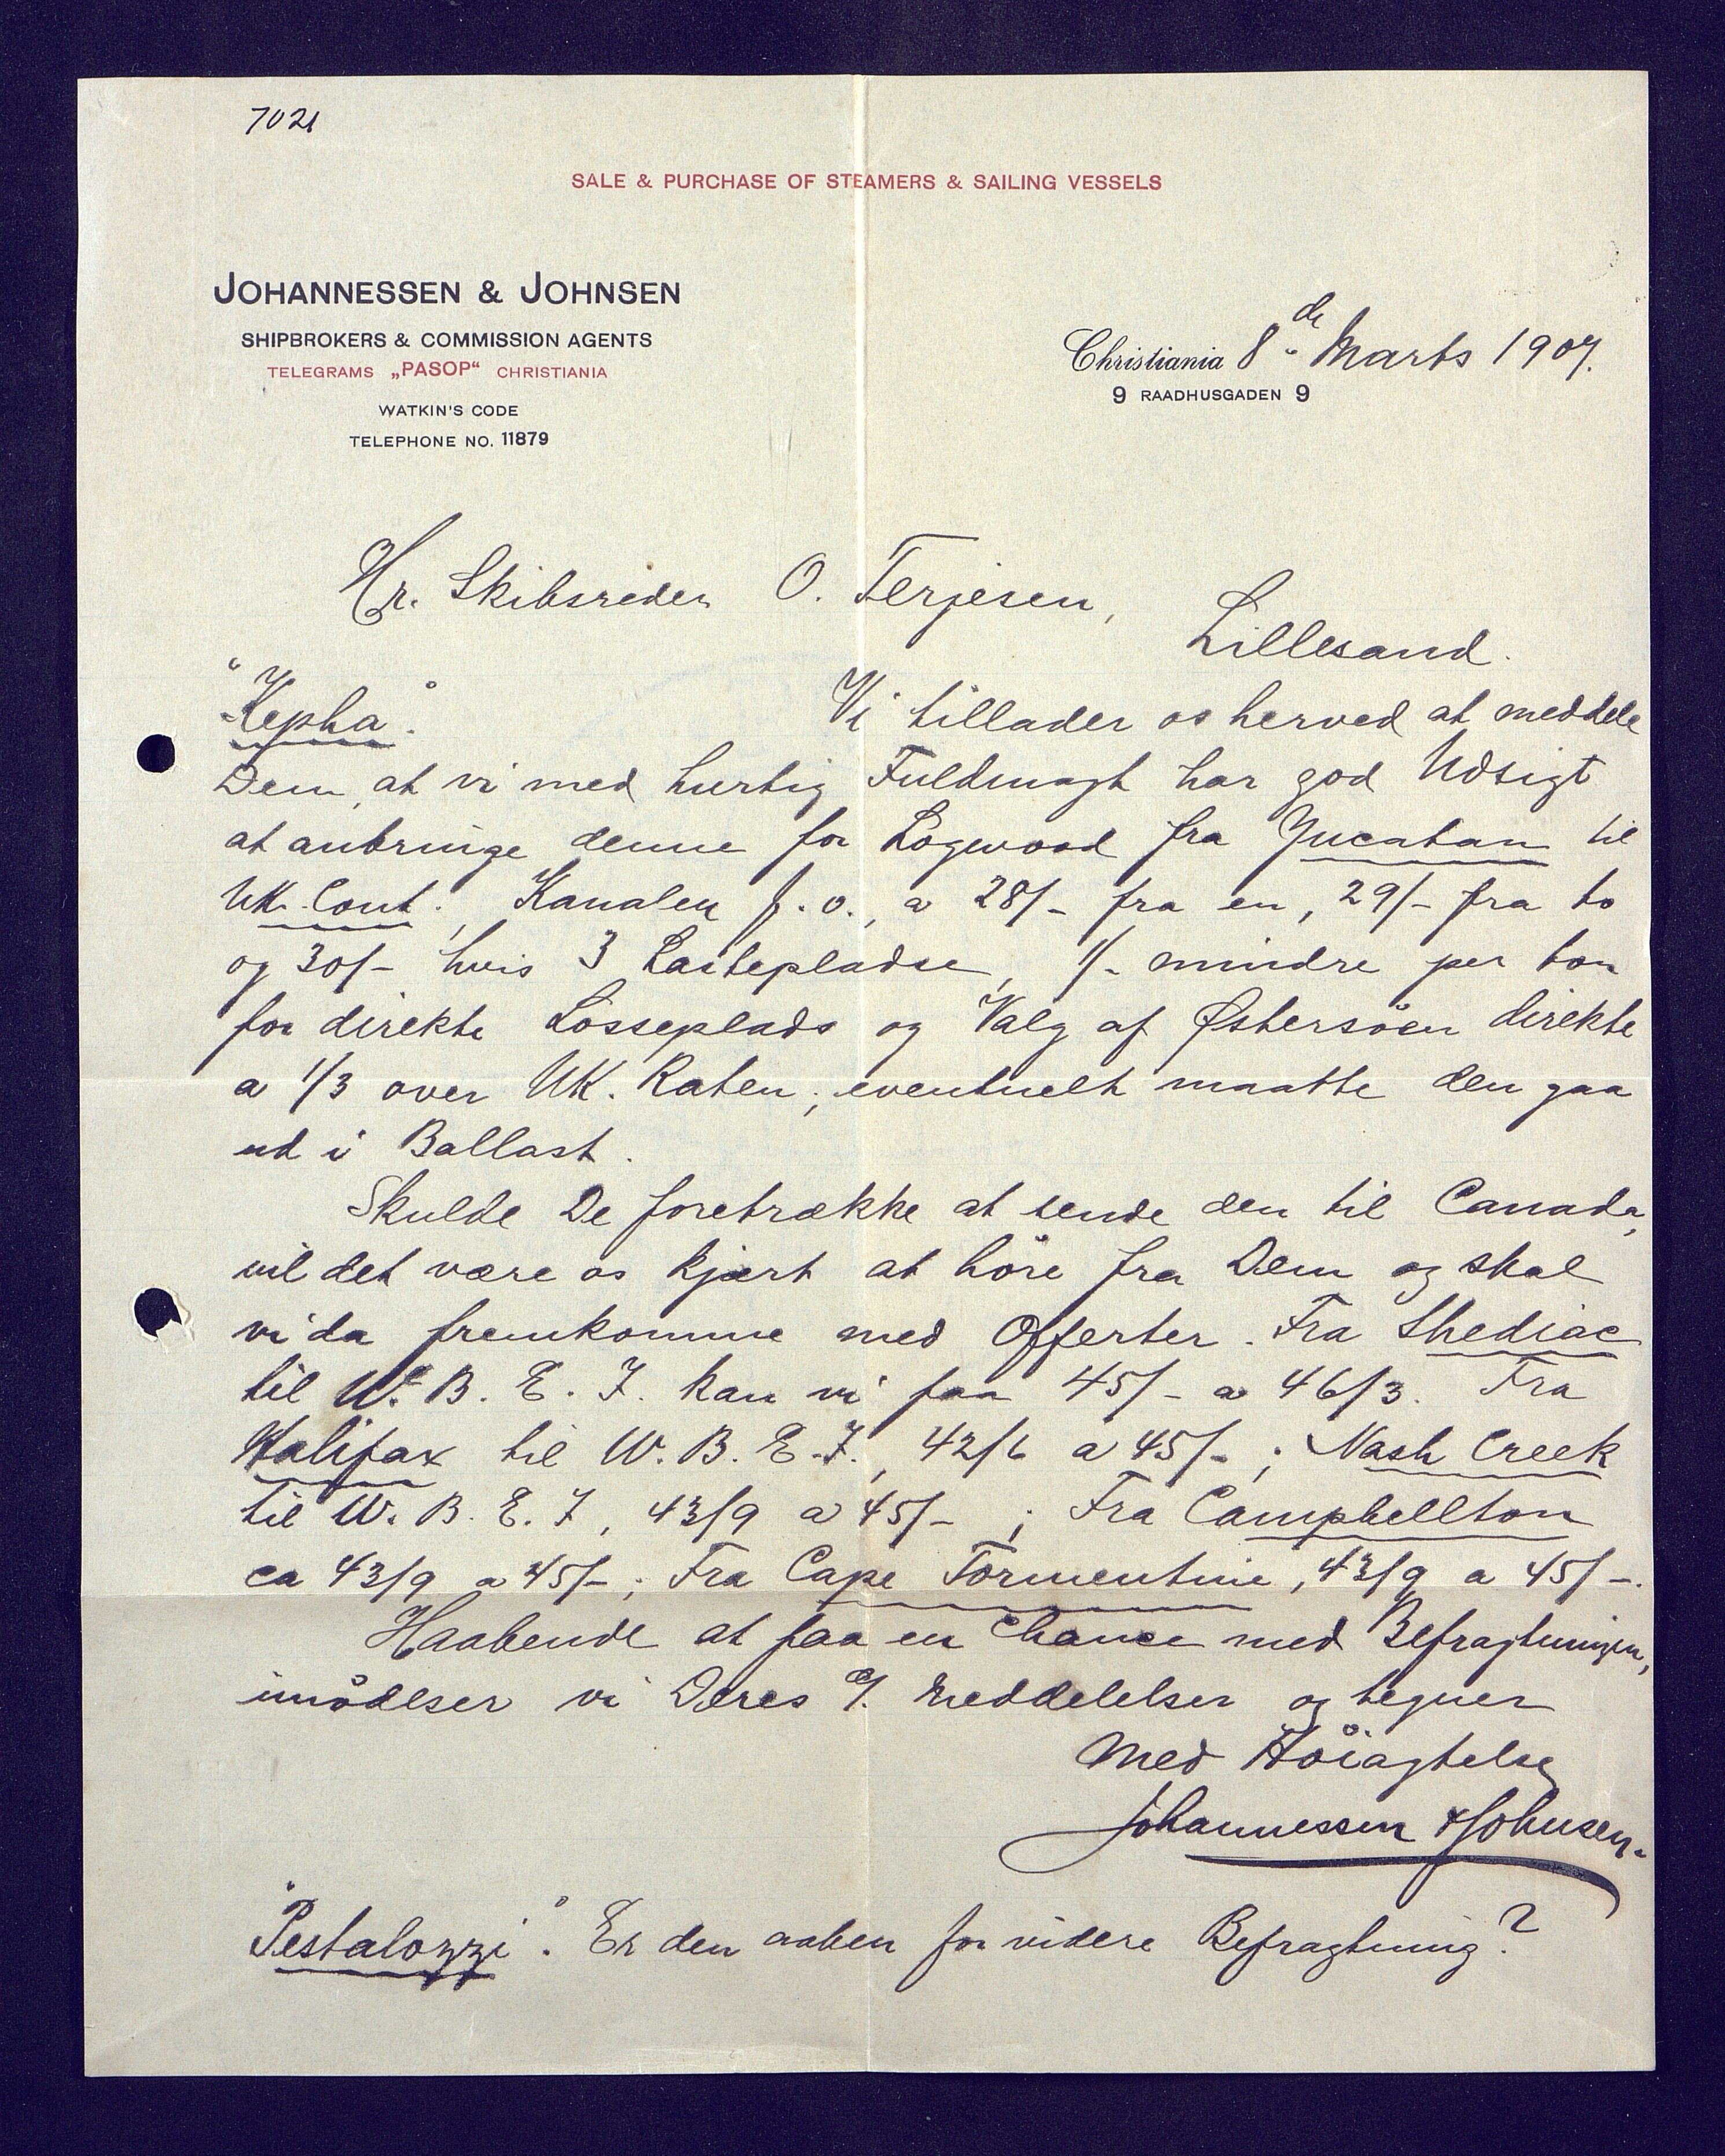 7021
SALE & PURCHASE OF STEAMERS & SAILING VESSELS
JOHANNESSEN & JOHNSEN
SHIPBROKERS & COMMISSION AGENTS
TELEGRAMS „PASOP“ CHRISTIANIA
WATKIN'S CODE
TELEPHONE NO. 11879
Christiania 8de Marts 1907.
9 RAADHUSGADEN 9
Hr. Skibsreder O. Terjesen,
Lillesand.
"Kepha". Vi tillader os herved at meddele
Dem, at vi med hurtig Fuldmagt har god Udsigt
at anbringe denne for Logwood fra Yucatan til
UK. Cont. Kanalen f. o., a 28/- fra en, 29/- fra to
og 30/- hvis 3 Lastepladse, 1/- mindre per ton
for direkte Losseplads og Valg af Østersöen direkte
a 1/3 over UK. Raten; eventuelt maatte den gaa
ud i Ballast.
Skulde De foretrække at sende den til Canada,
vil det være os kjært at höre fra Dem og skal
vi da fremkomme med Offerter. Fra Shediac
til W. B. E. I. kan vi faa 45/- a 46/3. Fra
Halifax til W. B. E. I., 42/6 a 45/-; Nash Creek
til W. B. E. I, 43/9 a 45/-; Fra Campbellton
ca 43/9 a 45/-; Fra Cape Tormentine, 43/9 a 45/-.
Haabende at faa en Chance med Befragtningen,
imödeser vi Deres Meddelelser og tegner
Med Höiagtelse
Johannessen & Johnsen.
"Pestalozzi". Er den aaben for videre Befragtning?